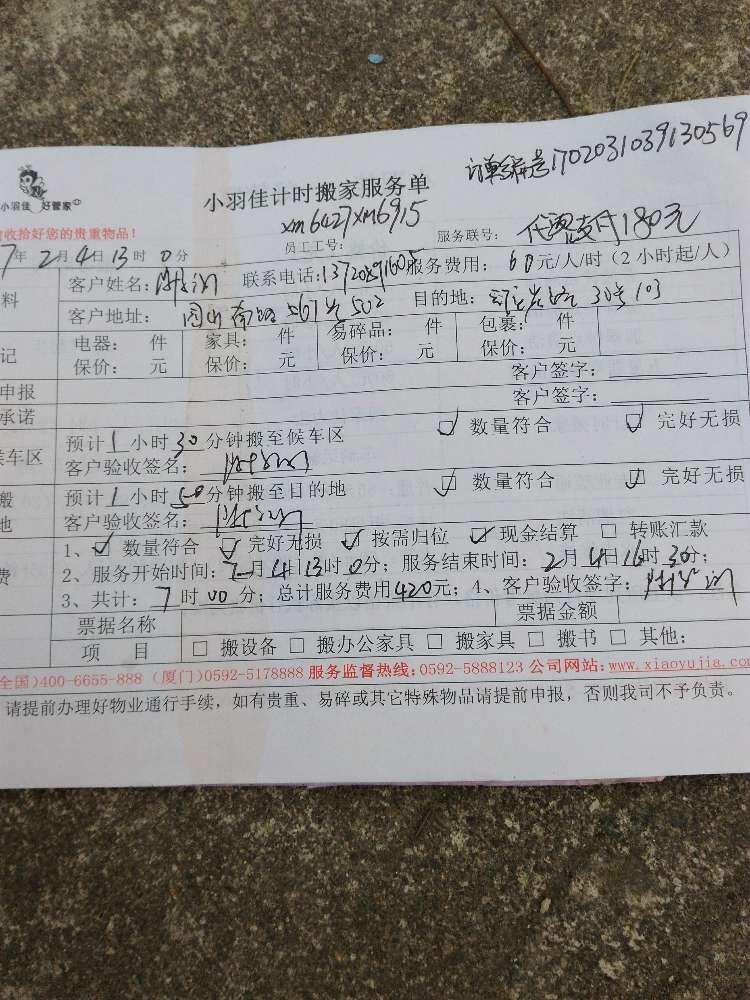 订单编号1702031039130569
小羽佳 好管家
小羽佳计时搬家服务单
xm6427xm6915
收拾好您的贵重物品!
员工工号: 服务联号: 代 支付180元
7年2月4日13时0分
料 客户姓名: 联系电话:13720891605 服务费用: 60元/人/时(2小时起/人)
客户地址: 南路567号502 目的地: 30号103
记 电器: 件 家具: 件 易碎品: 件 包裹: 件
保价: 元 保价: 元 保价: 元 保价: 元
申报 客户签字:
承诺 客户签字:
候车区 预计1小时30分钟搬至候车区 ☑ 数量符合 ☑ 完好无损
客户验收签名:
搬 预计1小时50分钟搬至目的地 ☑ 数量符合 ☑ 完好无损
地 客户验收签名:
1、☑ 数量符合 ☑ 完好无损 ☑ 按需归位 ☑ 现金结算 □ 转账汇款
费 2、服务开始时间:2月4日13时0分; 服务结束时间: 2月4日16时30分;
3、共计: 7时00分; 总计服务费用420元; 4、客户验收签字:
票据名称 票据金额
项 目 □ 搬设备 □ 搬办公家具 □ 搬家具 □ 搬书 □ 其他:
全国)400-6655-888 (厦门)0592-5178888 服务监督热线:0592-5888123 公司网站:www.xiaoyujia.com
请提前办理好物业通行手续, 如有贵重、易碎或其它特殊物品请提前申报, 否则我司不予负责。